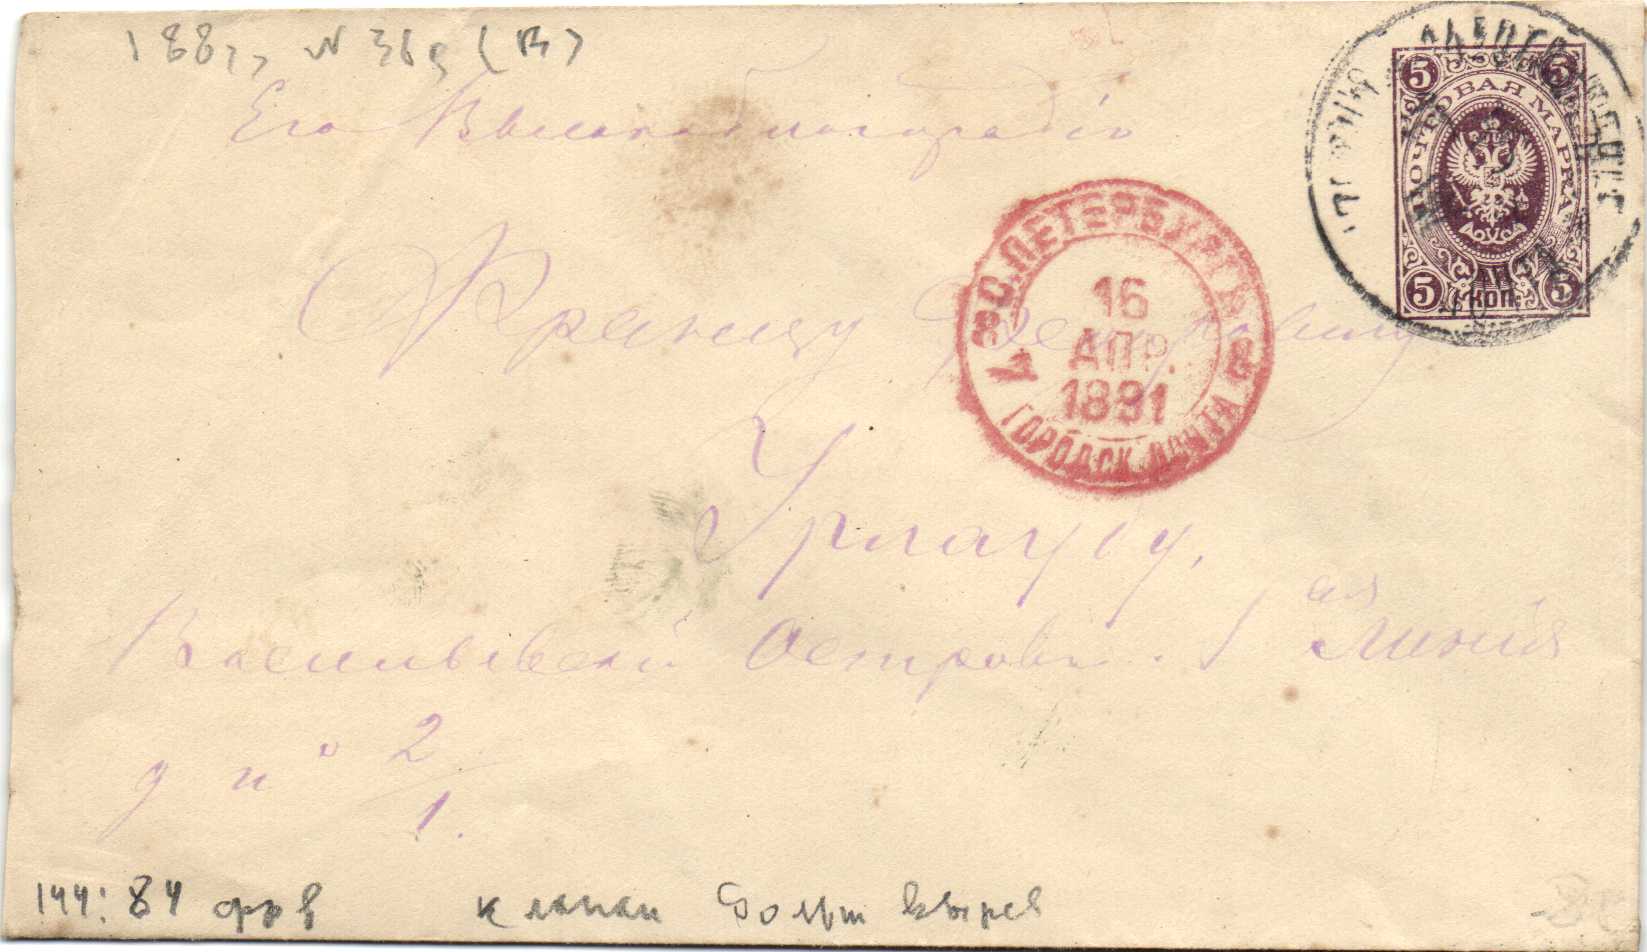 1883 г, № 36 д (В)
Его Высокоблагородію
Францу
Урлаубу,
Васильевскій Островъ. 1ая Линія
д № 2/1.
144:84
клапан больш вырез
5 5
ПОЧТОВАЯ МАРКА
5 КОП. 5
С.ПЕТЕРБУРГЪ
16
АПР.
1891
ГОРОДСК. ПОЧТА